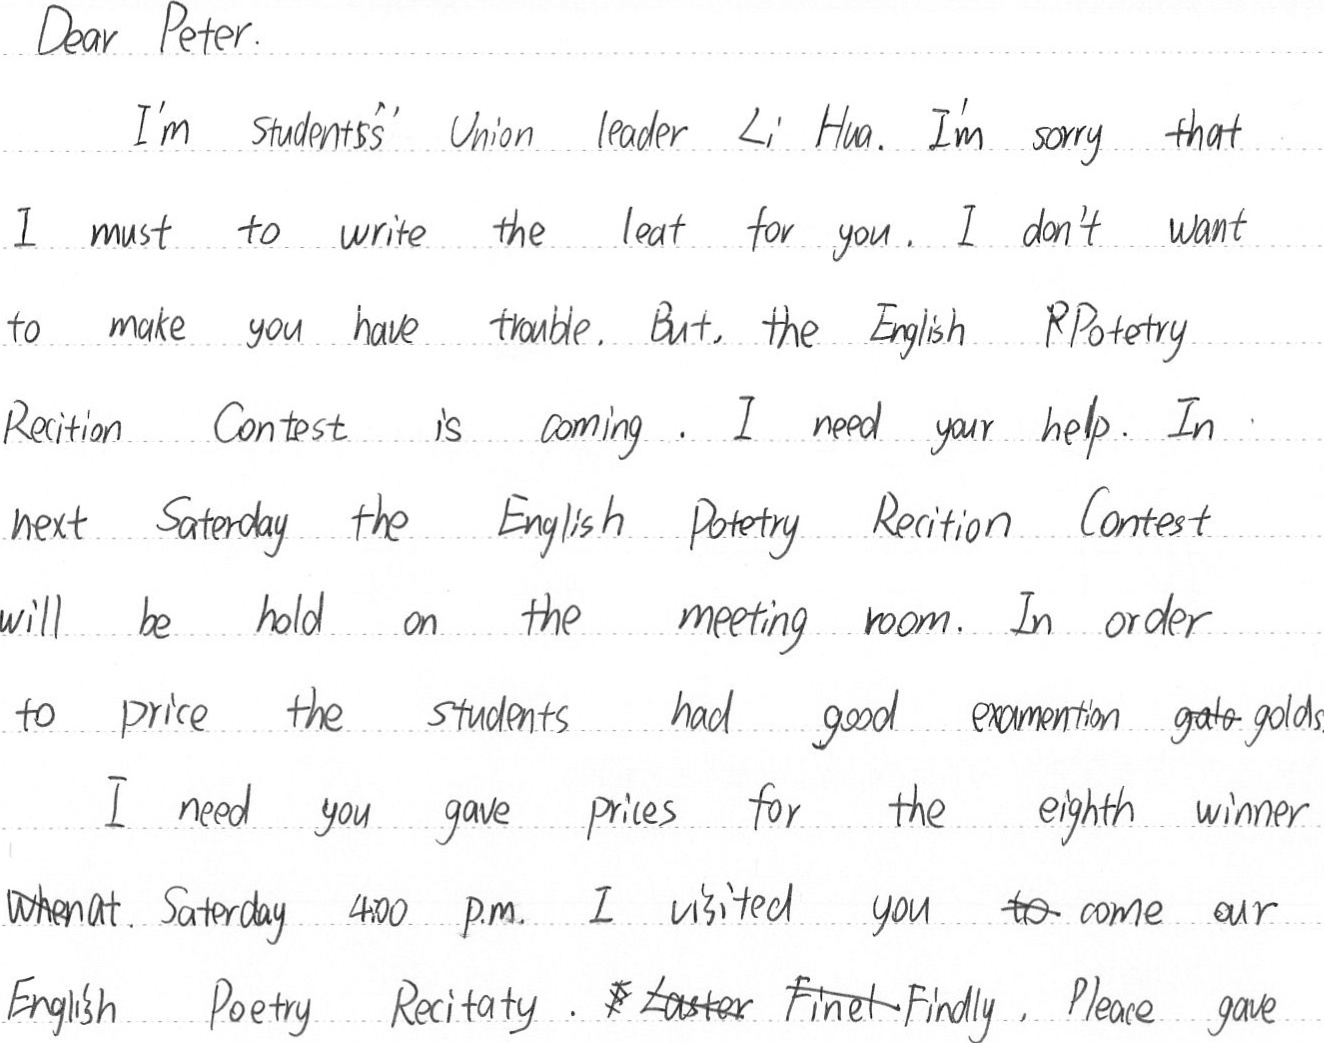 Dear Peter.
I'm students' Union leader Li Hua. I'm sorry that
I must to write the leat for you. I don't want
to make you have trouble. But, the English Potetry
Recition Contest is coming. I need your help. In
next Saterday the English Potetry Recition Contest
will be hold on the meeting room. In order
to price the students had good examention golds.
I need you gave prices for the eighth winner
at. Saterday 4:00 p.m. I visited you come our
English Poetry Recitaty. Findly, Pleace gave